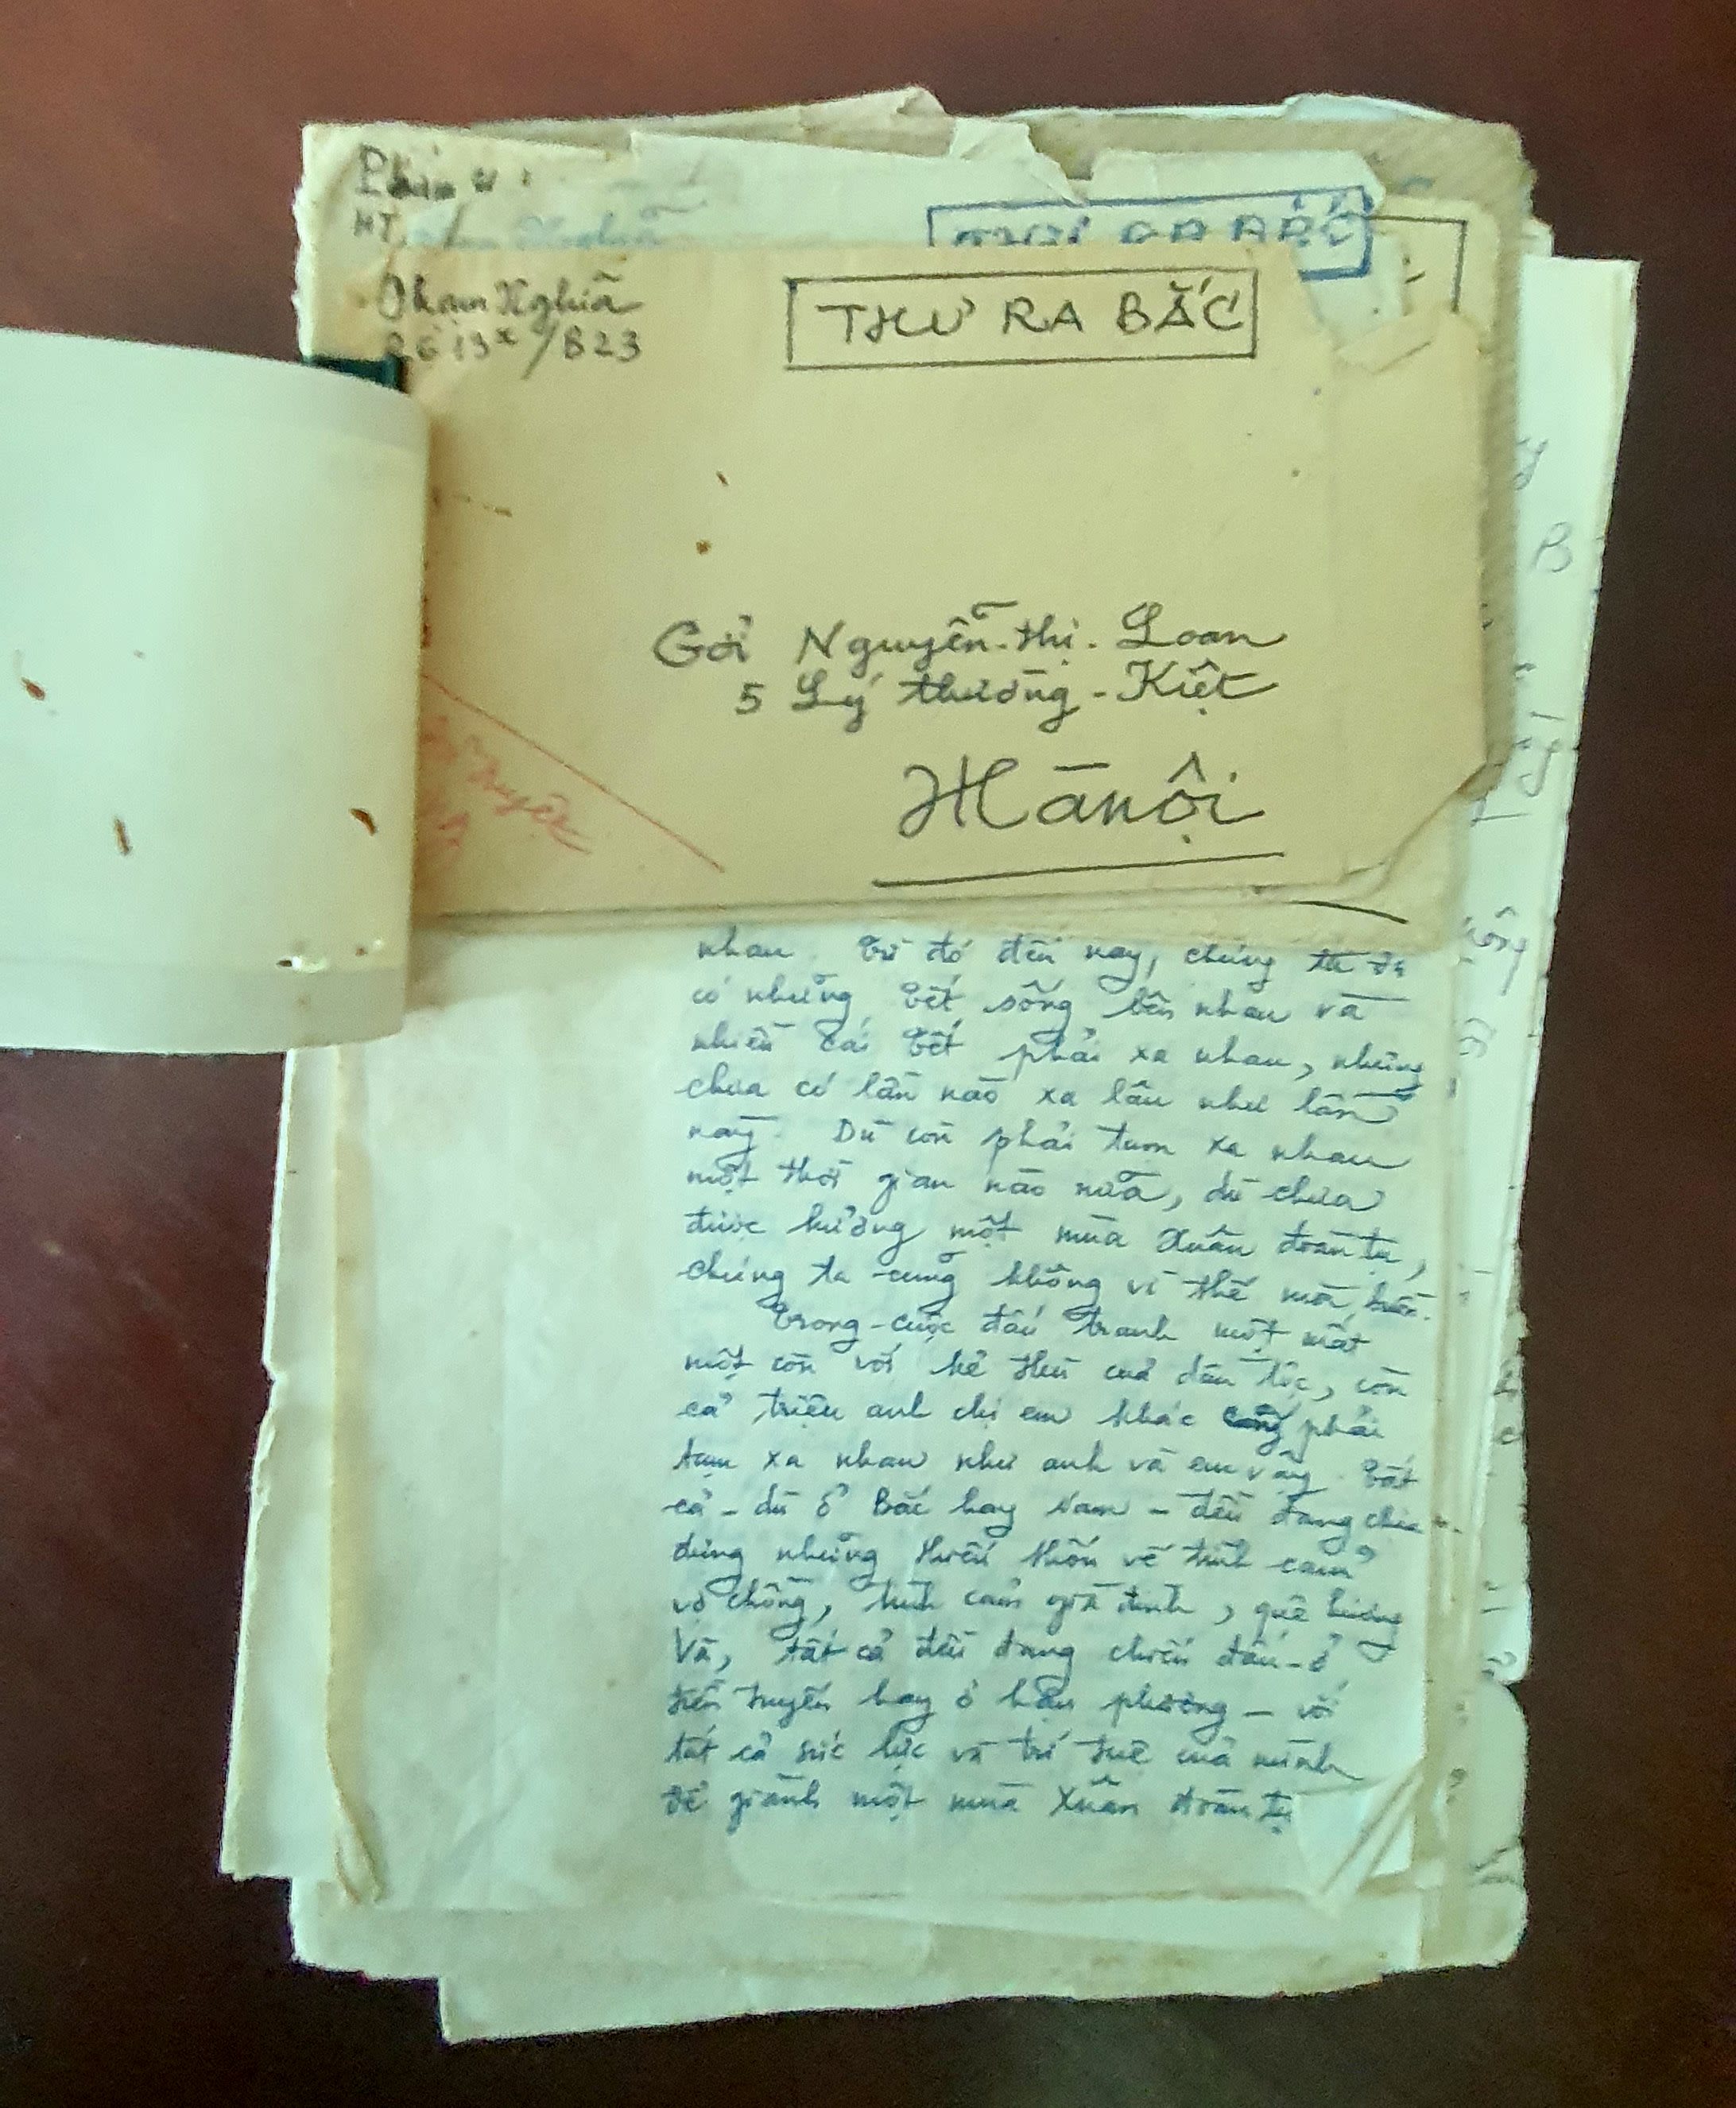 HT
THƯ RA BẮC
Phan Nghĩa
/B23
THƯ RA BẮC
Gởi Nguyễn-thị-Loan
5 Lý thường-Kiệt
Hà nội
nhau. Từ đó đến nay, chúng ta đã
có những Tết sống bên nhau và
nhiều cái Tết phải xa nhau, nhưng
chưa có lần nào xa lâu như lần
này. Dù còn phải tạm xa nhau
một thời gian nào nữa, dù chưa
được hưởng một mùa Xuân đoàn tụ,
chúng ta cũng không vì thế mà buồn.
Trong cuộc đấu tranh một mất
một còn với kẻ thù của dân tộc, còn
cả triệu anh chị em khác cũng phải
tạm xa nhau như anh và em vậy. Tất
cả - dù ở Bắc hay Nam - đều đang chịu
đựng những thiếu thốn về tình cảm
vợ chồng, tình cảm gia đình, quê hương
Và, tất cả đều đang chiến đấu - ở
tiền tuyến hay ở hậu phương - với
tất cả sức lực và trí tuệ của mình
để giành một mùa Xuân đoàn tụ